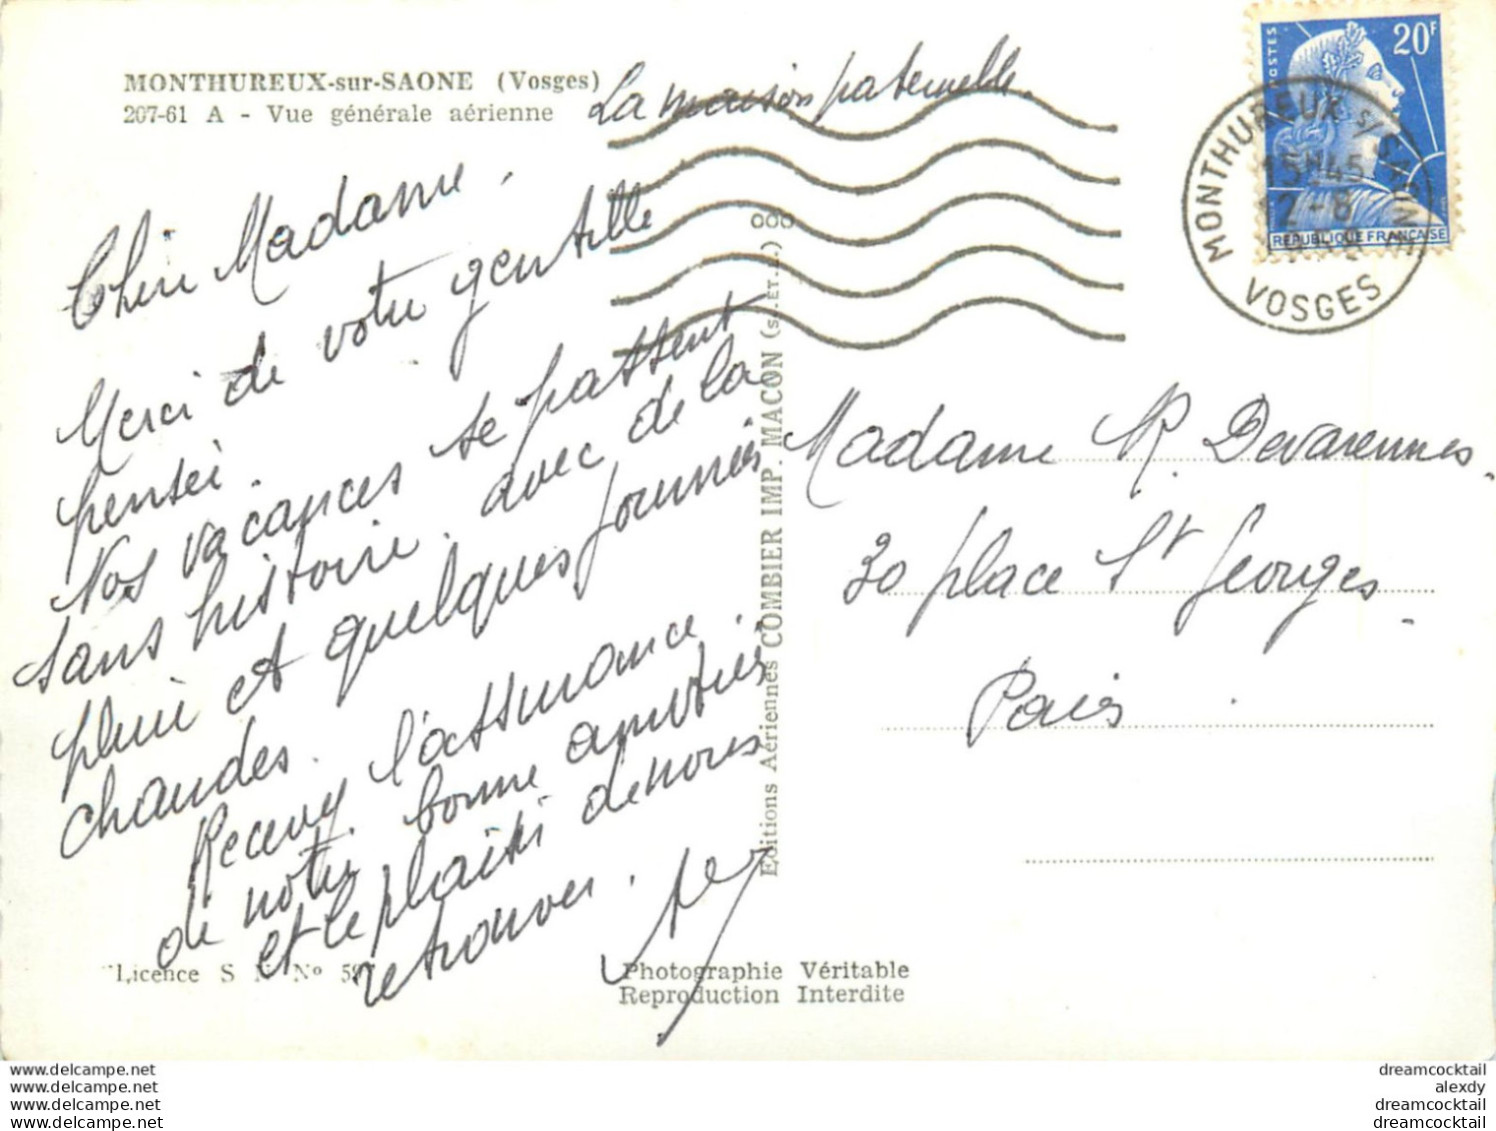 MONTHUREUX-sur-SAONE (Vosges)
207-61 A - Vue générale aérienne
La maison paternelle.
Chère Madame,
Merci de votre gentille
pensée.
Nos vacances se passent
sans histoire. avec de la
pluie et quelques journées
chaudes.
Recevez l'assurance
de notre bonne amitié.
et le plaisir de nous
retrouver.
Licence S N No
Photographie Véritable
Reproduction Interdite
Editions Aériennes COMBIER IMP. MACON (S.-ET-L.)
POSTES
20F
REPUBLIQUE FRANÇAISE
MONTHUREUX S/ SAONE
15H45
2-8
VOSGES
Madame R. Devarennes.
30 place St Georges.
Paris.
www.delcampe.net
www.delcampe.net
www.delcampe.net
www.delcampe.net
dreamcocktail
alexdy
dreamcocktail
dreamcocktail